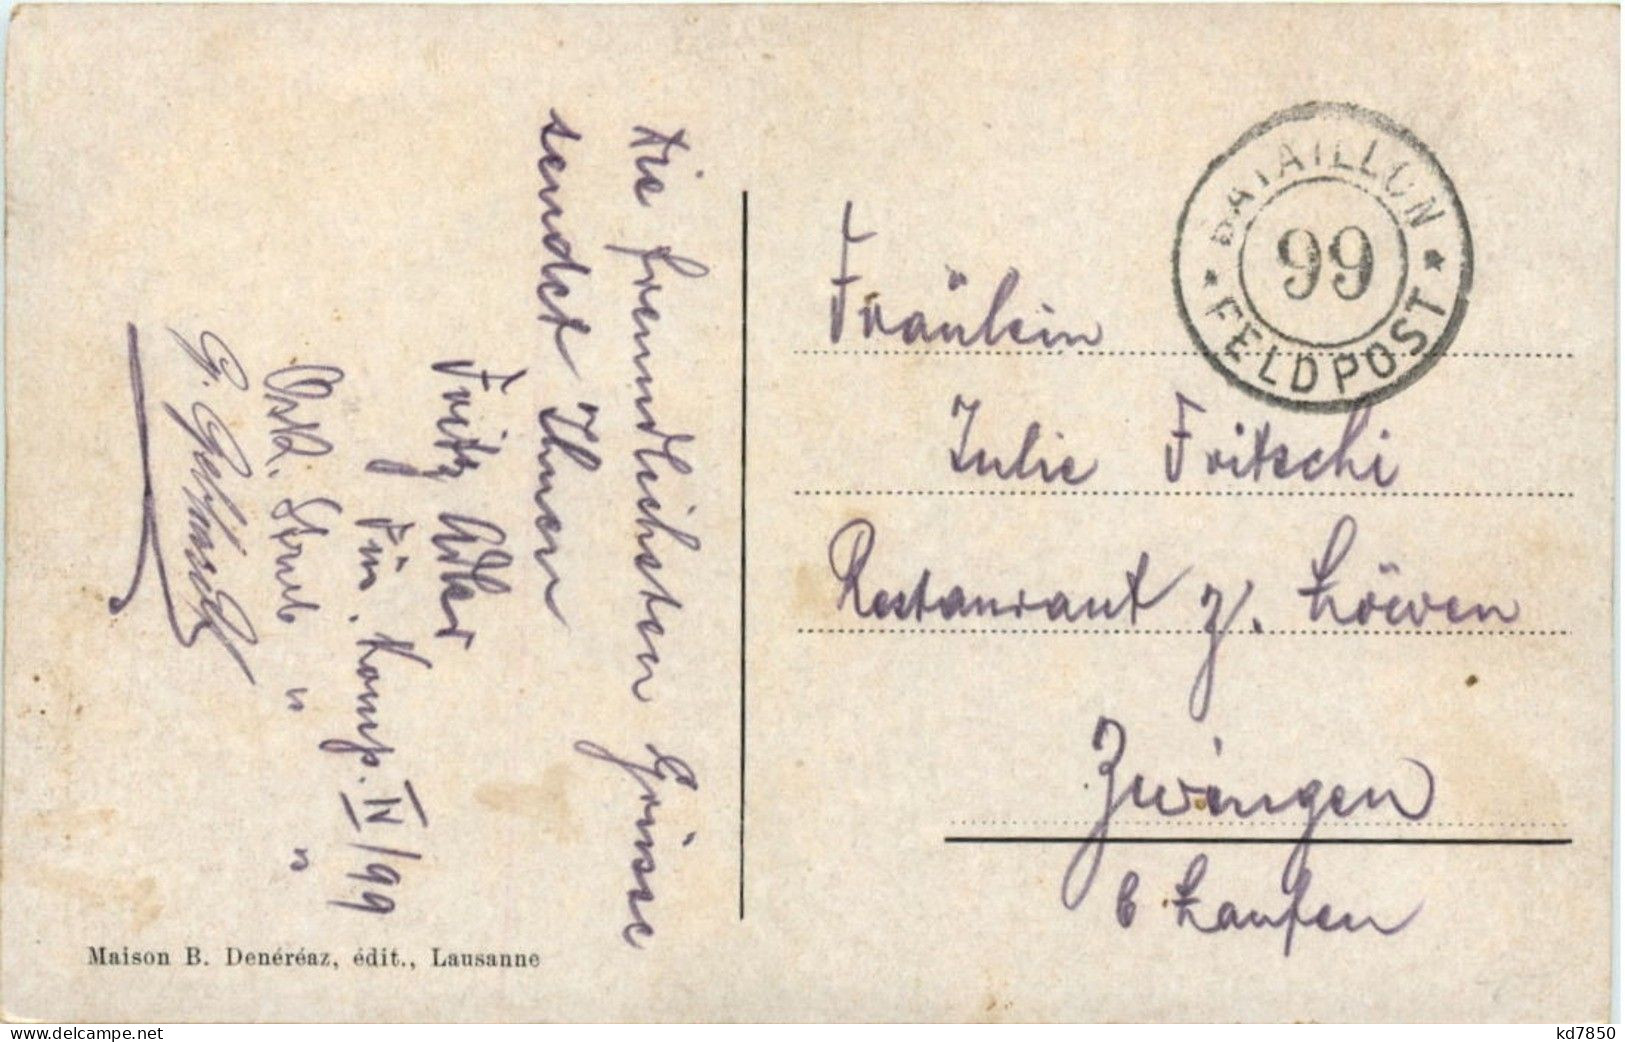 Die freundlichsten Grüsse
sendet Ihnen
Fritz Adler
Füs. Komp. IV/99
Straub " "
G.
BATAILLON
99
* FELDPOST *
Fräulein
Julie Fritschi
Restaurant z. Löwen
Zwingen
b Laufen
Maison B. Denéréaz, édit., Lausanne
www.delcampe.net
kd7850